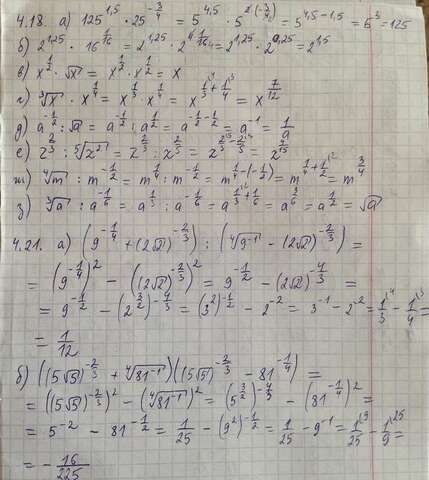 4.18. а) 125^{1,5} · 25^{-3/4} = 5^{4,5} · 5^{2·(-3/4)} = 5^{4,5-1,5} = 5^3 = 125
б) 2^{1,25} · 16^{1/16} = 2^{1,25} · 2^{4·1/16} = 2^{1,25} · 2^{0,25} = 2^{1,5}
в) x^{1/2} · √x = x^{1/2} · x^{1/2} = x
г) ∛x · x^{1/4} = x^{1/3} · x^{1/4} = x^{1/3+1/4} = x^{7/12}
д) a^{-1/2} : √a = a^{-1/2} : a^{1/2} = a^{-1/2-1/2} = a^{-1} = 1/a
е) z^{2/3} : ⁵√z² = z^{2/3} : z^{2/5} = z^{2/3-2/5} = z^{4/15}
ж) ⁴√m : m^{-1/2} = m^{1/4} : m^{-1/2} = m^{1/4-(-1/2)} = m^{1/4+1/2} = m^{3/4}
з) ∛a : a^{-1/6} = a^{1/3} : a^{-1/6} = a^{1/3+1/6} = a^{3/6} = a^{1/2} = √a
4.21. а) (9^{-1/4} + (2√2)^{-2/3}) : (⁴√9^{-1} - (2√2)^{-2/3}) =
= (9^{-1/4})² - ((2√2)^{-2/3})² = 9^{-1/2} - (2√2)^{-4/3} =
= 9^{-1/2} - (2^{3/2})^{-4/3} = (3²)^{-1/2} - 2^{-2} = 3^{-1} - 2^{-2} = 1/3 - 1/4 =
= 1/12
б) ((5√5)^{-2/3} + ⁴√81^{-1})((5√5)^{-2/3} - 81^{-1/4}) =
= ((5√5)^{-2/3})² - (⁴√81^{-1})² = (5^{3/2})^{-4/3} - (81^{-1/4})² =
= 5^{-2} - 81^{-1/2} = 1/25 - (9²)^{-1/2} = 1/25 - 9^{-1} = 1/25 - 1/9 =
= - 16/225